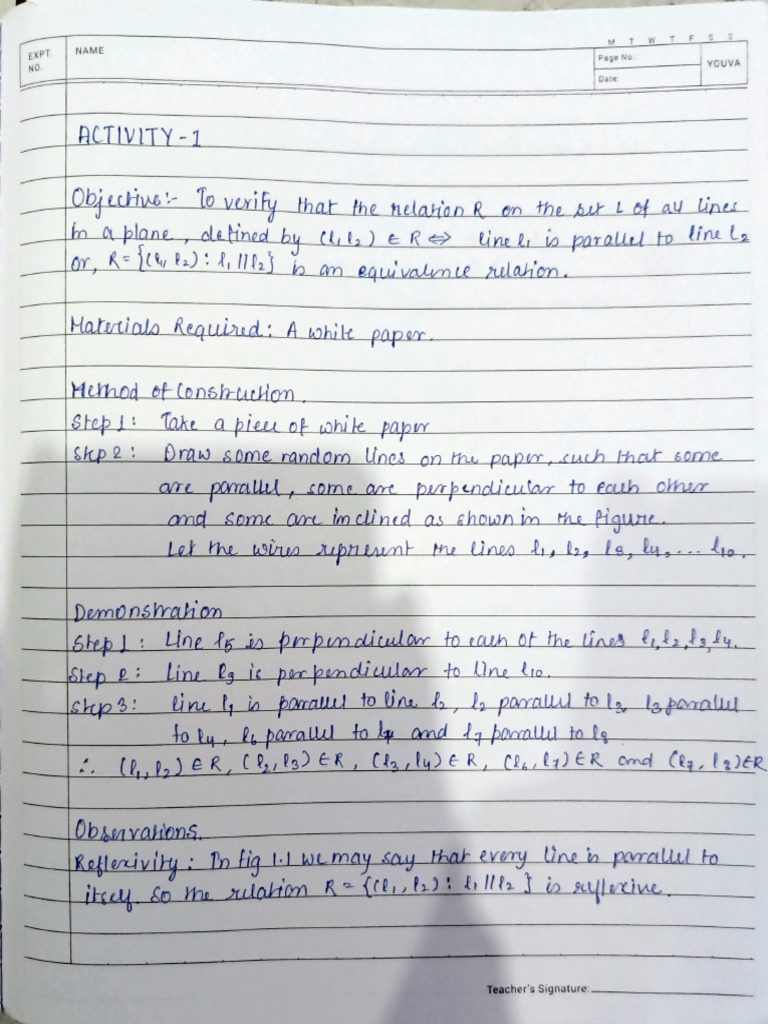 EXPT. NO.
NAME
M T W T F S S
Page No.:
Date:
YOUVA
ACTIVITY-1
Objective:- To verify that the relation R on the set L of all lines
in a plane, defined by (l1 l2) ∈ R ⇔ line l1 is parallel to line l2
or, R = {(l1, l2) : l1 || l2} is an equivalence relation.
Materials Required: A white paper.
Method of Construction.
Step 1: Take a piece of white paper
Step 2: Draw some random lines on the paper, such that some
are parallel, some are perpendicular to each other
and some are inclined as shown in the figure.
Let the wires represent the lines l1, l2, l3, l4, ... l10.
Demonstration
Step 1: Line l5 is perpendicular to each of the lines l1, l2, l3, l4.
Step 2: Line l9 is perpendicular to line l10.
Step 3: line l1 is parallel to line l2, l2 parallel to l3, l3 parallel
to l4, l6 parallel to l7 and l7 parallel to l8
∴ (l1, l2) ∈ R, (l2, l3) ∈ R, (l3, l4) ∈ R, (l6, l7) ∈ R and (l7, l8) ∈ R
Observations.
Reflexivity: In fig 1.1 we may say that every line is parallel to
itself. So the relation R = {(l1, l2) : l1 || l2 } is reflexive.
Teacher's Signature: